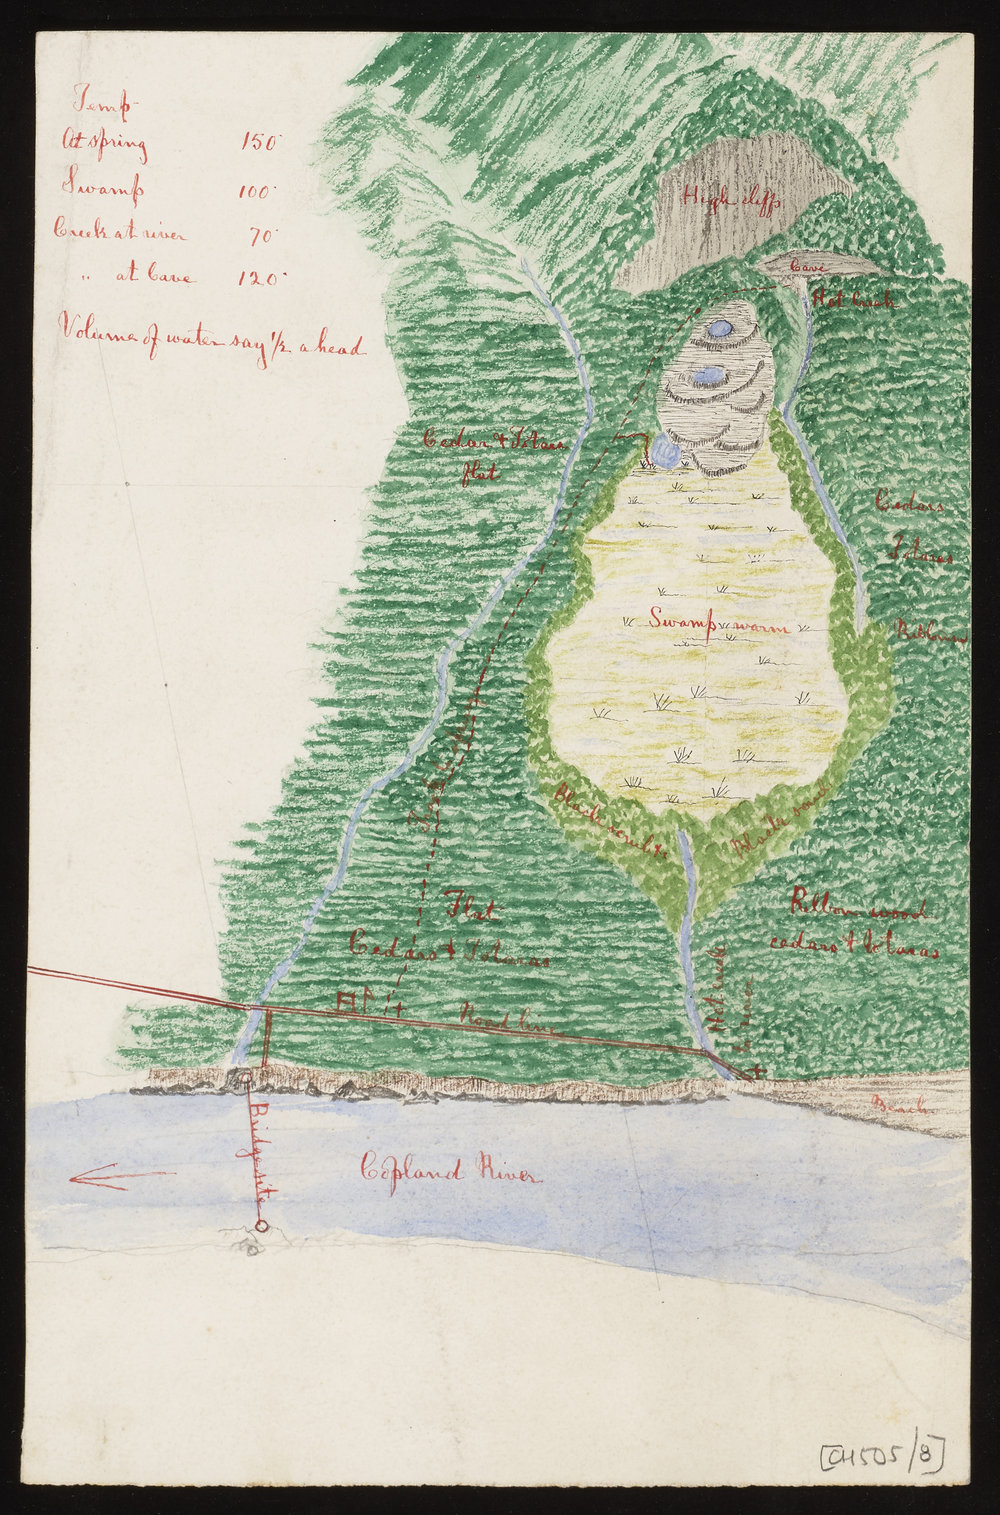 Temp
At spring 150°
Swamp 100°
Creek at river 70°
" at Cave 120°
Volume of water say 1/2 a head
High cliffs
Cave
Hot creek
Cedar & Totara
flat
Cedars
Totaras
Swamp warm
Black scrub
Black
Flat
Cedars & Totaras
Ribbon wood
cedars & totaras
Hot creek
to river
Road line
Beach
Bridge site
Copland River
[CH505/8]